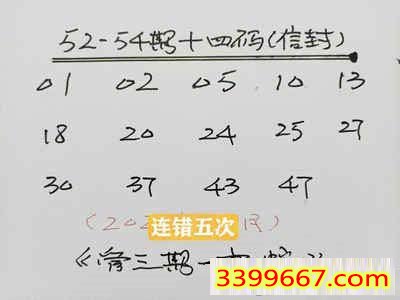 52-54期十四码(信封)
01 02 05 10 13
18 20 24 25 27
30 37 43 47
(202
连错五次
三期一
3399667.com